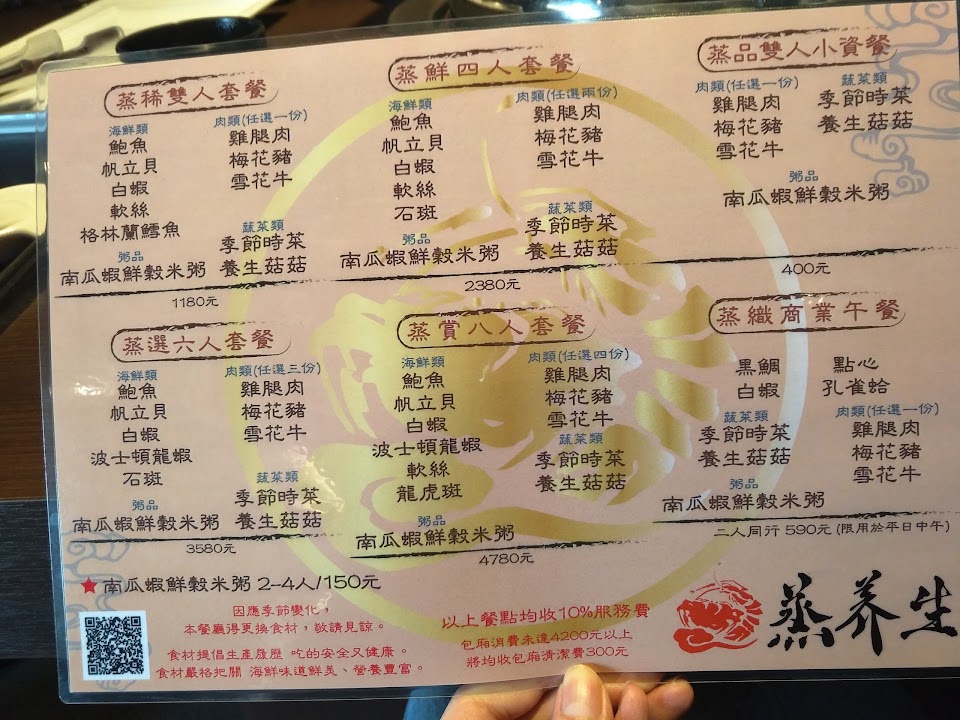 蒸稀雙人套餐
海鮮類
鮑魚
帆立貝
白蝦
軟絲
格林蘭鱈魚
粥品
南瓜蝦鮮穀米粥
肉類(任選一份)
雞腿肉
梅花豬
雪花牛
蔬菜類
季節時菜
養生菇菇
1180元
蒸鮮四人套餐
海鮮類
鮑魚
帆立貝
白蝦
軟絲
石斑
粥品
南瓜蝦鮮穀米粥
肉類(任選兩份)
雞腿肉
梅花豬
雪花牛
蔬菜類
季節時菜
養生菇菇
2380元
蒸品雙人小資餐
肉類(任選一份)
雞腿肉
梅花豬
雪花牛
蔬菜類
季節時菜
養生菇菇
粥品
南瓜蝦鮮穀米粥
400元
蒸選六人套餐
海鮮類
鮑魚
帆立貝
白蝦
波士頓龍蝦
石斑
粥品
南瓜蝦鮮穀米粥
肉類(任選三份)
雞腿肉
梅花豬
雪花牛
蔬菜類
季節時菜
養生菇菇
3580元
蒸賞八人套餐
海鮮類
鮑魚
帆立貝
白蝦
波士頓龍蝦
軟絲
龍虎斑
粥品
南瓜蝦鮮穀米粥
肉類(任選四份)
雞腿肉
梅花豬
雪花牛
蔬菜類
季節時菜
養生菇菇
4780元
蒸織商業午餐
黑鯛
白蝦
蔬菜類
季節時菜
養生菇菇
粥品
南瓜蝦鮮穀米粥
點心
孔雀蛤
肉類(任選一份)
雞腿肉
梅花豬
雪花牛
二人同行 590元 (限用於平日中午)
★南瓜蝦鮮穀米粥 2-4人/150元
因應季節變化，
本餐廳得更換食材，敬請見諒。
食材提倡生產履歷 吃的安全又健康。
食材嚴格把關 海鮮味道鮮美、營養豐富。
以上餐點均收10%服務費
包廂消費未達4200元以上
將均收包廂清潔費300元
蒸养生